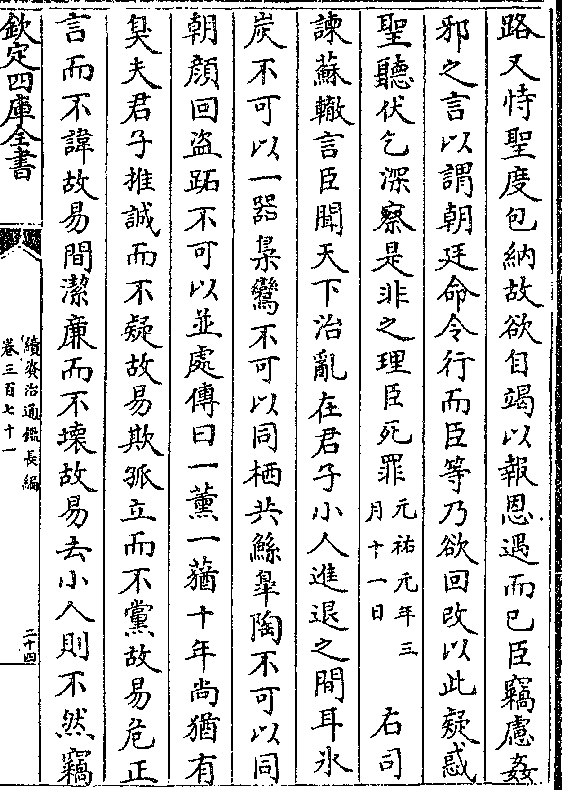 路又恃聖度包納故欲自竭以報恩遇而已臣竊慮姦
邪之言以謂朝廷命令行而臣等乃欲回改以此疑惑
聖聽伏乞深察是非之理臣死罪元祐元年三月十一日 右司
諫蘇轍言臣聞天下治亂在君子小人進退之間耳氷
炭不可以一器梟鸞不可以同栖共鯀臯陶不可以同
朝顔回盜跖不可以並處傳曰一薰一蕕十年尚猶有
臭夫君子推誠而不疑故易欺孤立而不黨故易危正
言而不諱故易間潔廉而不壊故易去小人則不然竊
欽定四庫全書
續資治通鑑長編
卷三百七十一
二十四